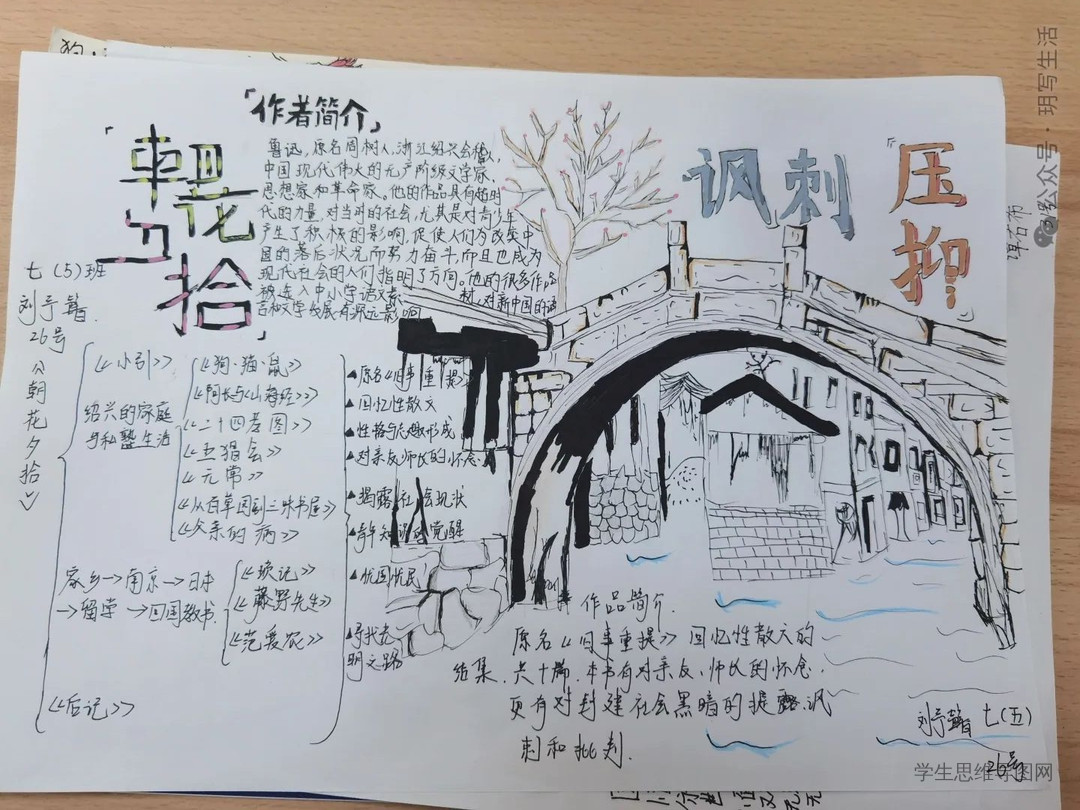 「作者简介」
鲁迅，原名周树人，浙江绍兴会稽人，
中国现代伟大的无产阶级文学家、
思想家和革命家。他的作品具有超时
代的力量，对当时的社会，尤其是对青少年
产生了积极的影响，促使人们为改变中
国的落后状况而努力奋斗，而且也成为
现代社会的人们指明了方向。他的很多作品
被选入中小学语文教材，对新中国的语
言和文学发展有深远影响
「朝花
夕拾」
讽刺
「压
抑」
七（5）班
26号
《朝花夕拾》
《小引》
绍兴的家庭
与私塾生活
《狗·猫·鼠》
《阿长与《山海经》》
《二十四孝图》
《五猖会》
《无常》
《从百草园到三味书屋》
《父亲的病》
家乡→南京→日本
→留学→回国教书
《琐记》
《藤野先生》
《范爱农》
《后记》
▲原名《旧事重提》
▲回忆性散文
▲性格与志趣形成
▲对亲友师长的怀念
▲揭露社会现状
▲忧国忧民
作品简介.
原名《旧事重提》回忆性散文的
结集.共十篇.本书有对亲友、师长的怀念.
更有对封建社会黑暗的提露.讽
刺和批判.
七（五）
26号
公众号·玥写生活
学生思维导图网